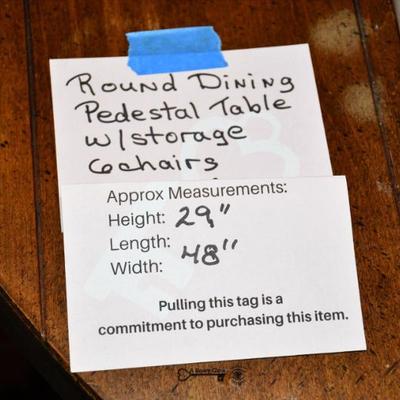 Round Dining
Pedestal Table
w/storage
6 chairs
Approx Measurements:
Height: 29"
Length:
Width: 48"
Pulling this tag is a
commitment to purchasing this item.